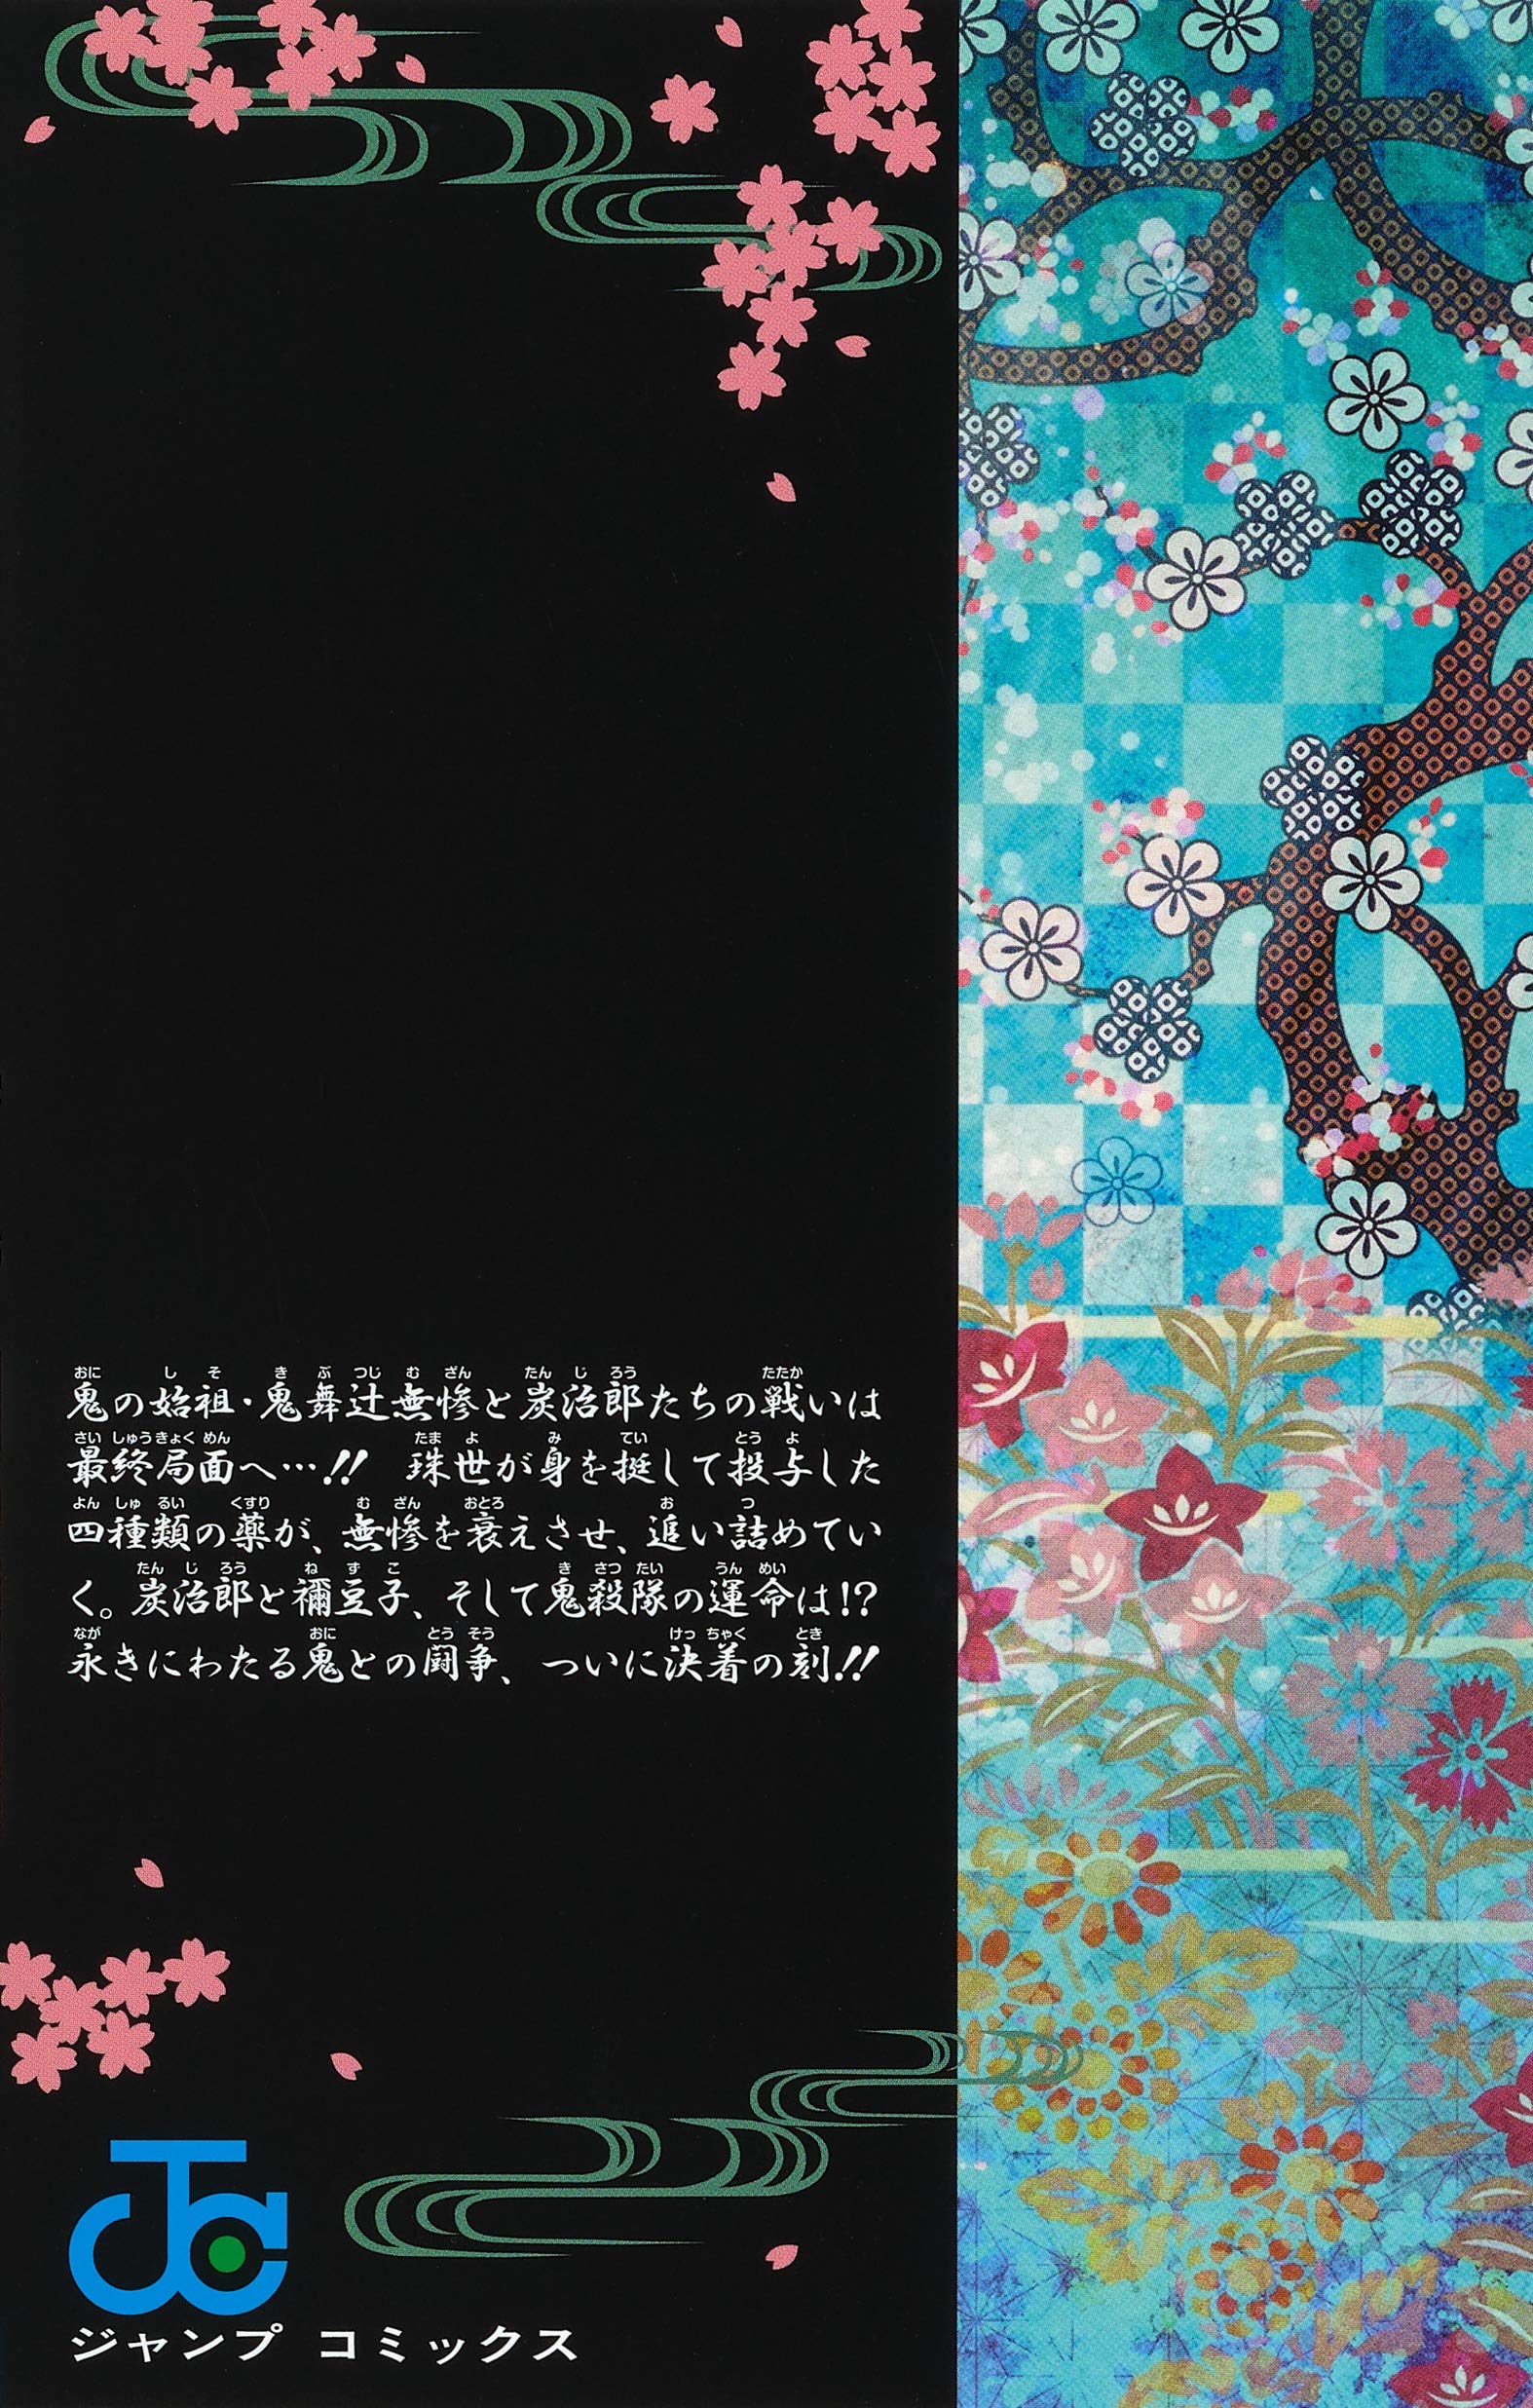 鬼の始祖・鬼舞辻無惨と炭治郎たちの戦いは
最終局面へ…!! 珠世が身を挺して投与した
四種類の薬が、無惨を衰えさせ、追い詰めてい
く。炭治郎と禰豆子、そして鬼殺隊の運命は!?
永きにわたる鬼との闘争、ついに決着の刻!!
JC
ジャンプ コミックス